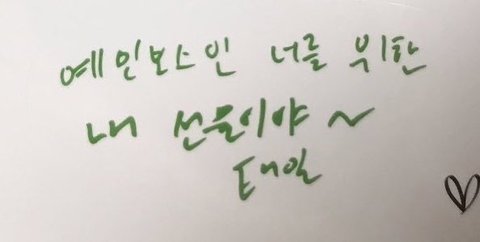 예인보스인 너를 위한
내 선물이야 ~
태일